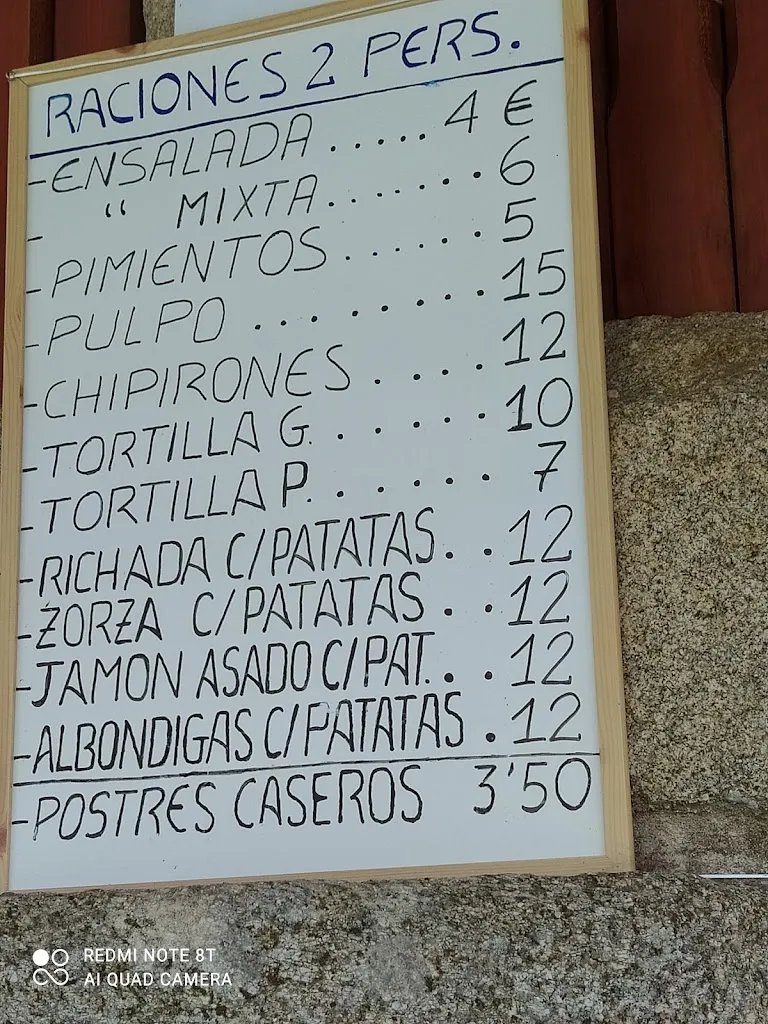 RACIONES 2 PERS.
-ENSALADA ..... 4 €
- “ MIXTA....... 6
-PIMIENTOS ...... 5
-PULPO ......... 15
-CHIPIRONES .... 12
-TORTILLA G. ..... 10
-TORTILLA P. ..... 7
-RICHADA C/PATATAS. . 12
-ZORZA C/PATATAS . . 12
-JAMON ASADO C/PAT. . . 12
-ALBONDIGAS C/PATATAS . 12
-POSTRES CASEROS 3'50
REDMI NOTE 8T
AI QUAD CAMERA